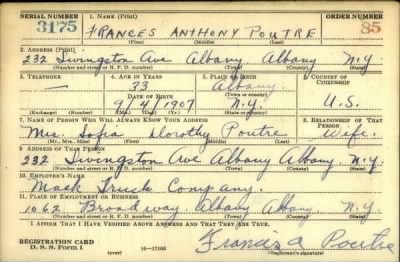 SERIAL NUMBER 1. NAME (Print) ORDER NUMBER
3175 FRANCES ANTHONY POUTRE 85
(First) (Middle) (Last)
2. ADDRESS (Print)
232 Livingston Ave Albany Albany N.Y.
(Number and street or R. F. D. number) (Town) (County) (State)
3. TELEPHONE 4. AGE IN YEARS 5. PLACE OF BIRTH 6. COUNTRY OF CITIZENSHIP
— 33 Albany
DATE OF BIRTH (Town or county)
9/4/1907 N.Y. U.S.
(Mo.) (Day) (Yr.) (State or country)
7. NAME OF PERSON WHO WILL ALWAYS KNOW YOUR ADDRESS 8. RELATIONSHIP OF THAT PERSON
Mrs. Sofia Dorothy Poutre Wife.
(Mr., Mrs., Miss) (First) (Middle) (Last)
9. ADDRESS OF THAT PERSON
232 Livingston Ave Albany Albany N.Y.
(Number and street or R. F. D. number) (Town) (County) (State)
10. EMPLOYER'S NAME
Mack Truck Company.
11. PLACE OF EMPLOYMENT OR BUSINESS
1062 Broadway Albany Albany N.Y.
(Number and street or R. F. D. number) (Town) (County) (State)
I AFFIRM THAT I HAVE VERIFIED ABOVE ANSWERS AND THAT THEY ARE TRUE.
REGISTRATION CARD
D. S. S. FORM 1 (over) Francis A Poutre
(Registrant's signature)